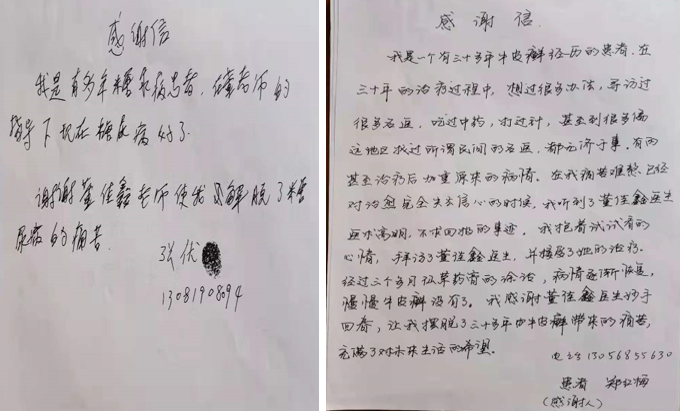 感谢信
我是有多年糖尿病患者,在董老师的
指导下现在糖尿病好了
谢谢董佳鑫老师使我解脱了糖
尿病的痛苦
张优
13081908094
感谢信.
我是一个有三十多年牛皮癣经历的患者.在
三十年的治疗过程中,想过很多办法,寻访过
很多名医,吃过中药,打过针,甚至到很多偏
远地区找过所谓民间的名医,都无济于事.有两
甚至治疗后加重原来的病情.在我痛苦难熬已经
对治愈完全失去信心的时候,我听到了董佳鑫医生
医术高明,不求回报的事迹.我抱着试试看的
心情,拜访了董佳鑫医生,并接受了她的治疗.
经过三个多月仅草药膏的涂治,病情逐渐恢复,
慢慢牛皮癣没有了.我感谢董佳鑫医生妙手
回春,让我摆脱了三十多年的牛皮癣带来的痛苦,
充满了对未来生活的希望.
电话13056855630
患者 郑红梅
(感谢人)